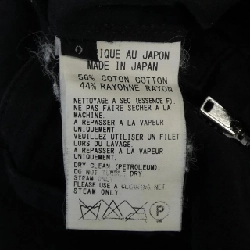 2
IQUE AU JAPON
MADE IN JAPAN
56% COTON COTTON
44% RAYONNE RAYON
NETTOYAGE A SEC (ESSENCE F).
NE PAS FAIRE SECHER A LA
MACHINE.
A REPASSER A LA VAPEUR
VEUILLEZ UTILISER UN FILET
LORS DU LAVAGE.
A REPASSER A LA VAPEUR
UNIQUEMENT
DRY CLEAN (PETROLEUM)
DO NOT TUMBLE DRY
STEAM
PLEASE USE A NET
STEAM ONLY
P